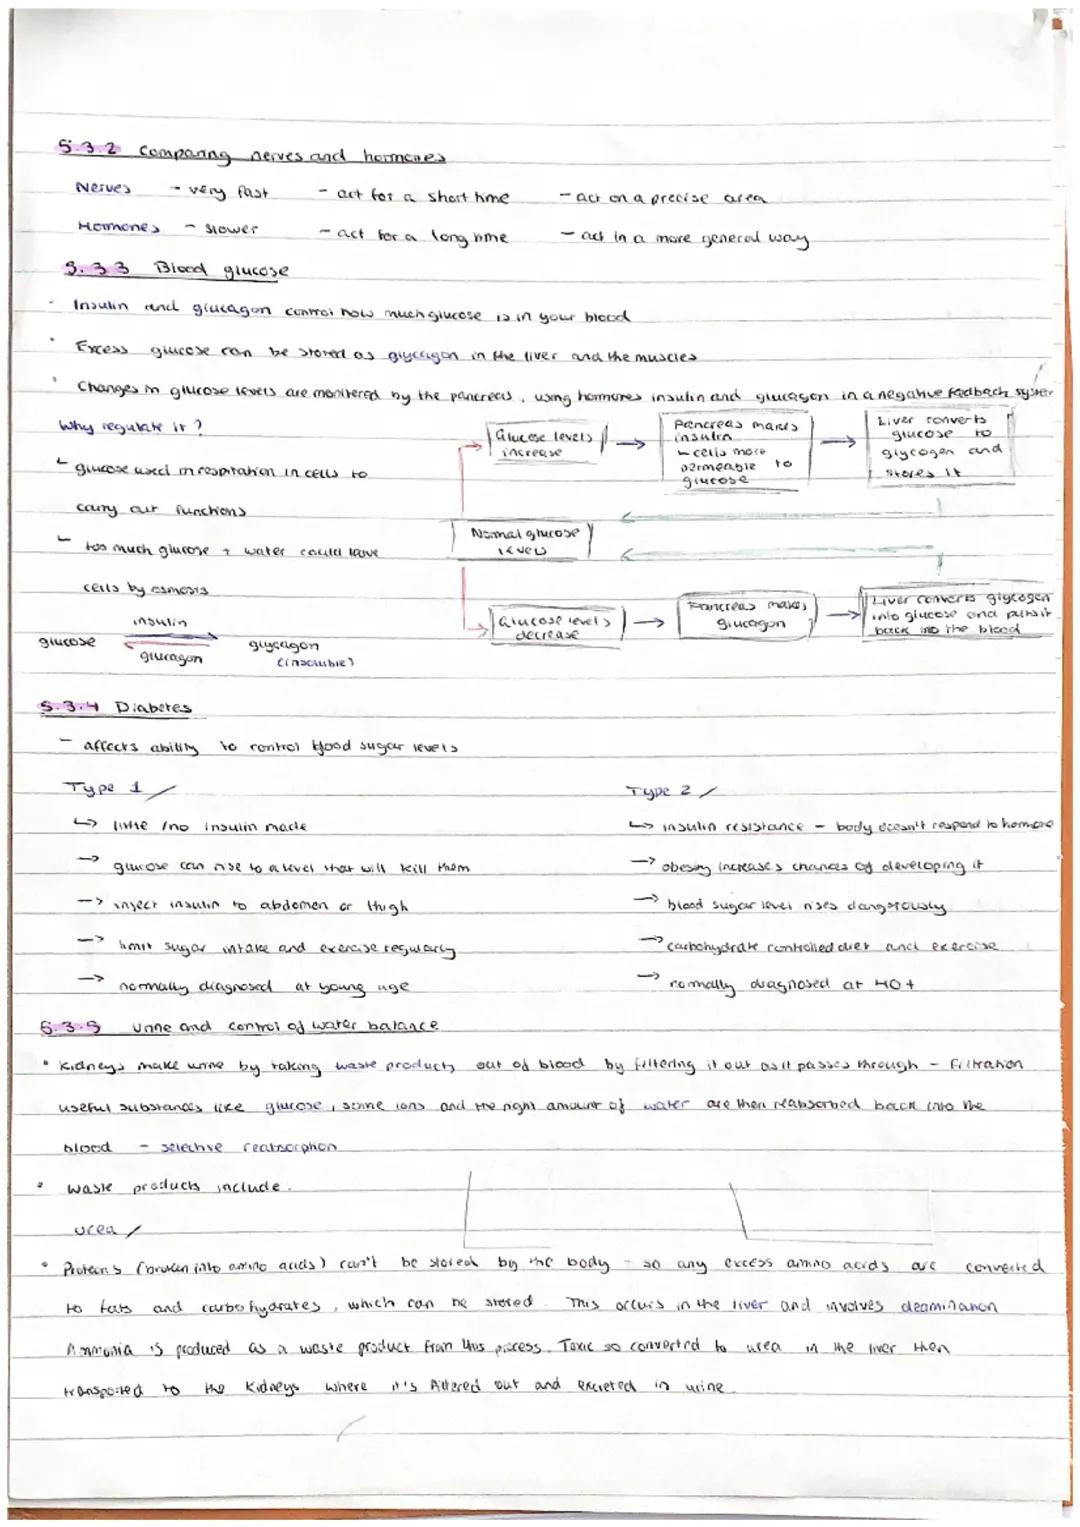 5.3.2 Comparing nerves and hormones
Nerves - very fast - act for a short time - act on a precise area
Hormones - slower - act for a long time - act in a more general way
5.3.3 Blood glucose
- Insulin and glucagon control how much glucose is in your blood
• Excess glucose can be stored as glycogen in the liver and the muscles
• Changes in glucose levels are monitered by the pancreas, using hormones insulin and glucagon in a negative feedback system
Why regulate it?
glucose used in respiration in cells to
carry out functions
too much glucose + water could leave
cells by osmosis
insulin
glucose glycogen
(insoluble)
glucagon
Glucose levels
increase
Pancreas makes
insulin
cells more
permeable to
glucose
Liver converts
glucose to
glycogen and
stores it
Normal glucose
levels
Glucose levels
decrease
Pancreas makes
glucagon
Liver converts glycogen
into glucose and puts it
back into the blood
5.3.4 Diabetes
- affects ability to control blood sugar levels
Type 1
↳ little /no insulin made
→ glucose can rise to a level that will kill them
→ inject insulin to abdomen or thigh
→ limit sugar intake and exercise regularly
→ normally diagnosed at young age
Type 2
↳ insulin resistance - body doesn't respond to hormone
→ obesity increases chances of developing it
→ blood sugar level rises dangerously
→ carbohydrate controlled diet and exercise
→ normally diagnosed at 40+
5.3.5 Urine and control of water balance
• Kidneys make urine by taking waste products out of blood by filtering it out as it passes through - Filtration
useful substances like glucose, some ions and the right amount of water are then reabsorbed back into the
blood - selective reabsorption
• waste products include.
urea
• Proteins (broken into amino acids) can't be stored by the body - so any excess amino acids are converted
to fats and carbohydrates, which can be stored. This occurs in the liver and involves deamination
Ammonia is produced as a waste product from this process. Toxic so converted to urea in the liver then
transported to the kidneys where it's filtered out and excreted in urine.